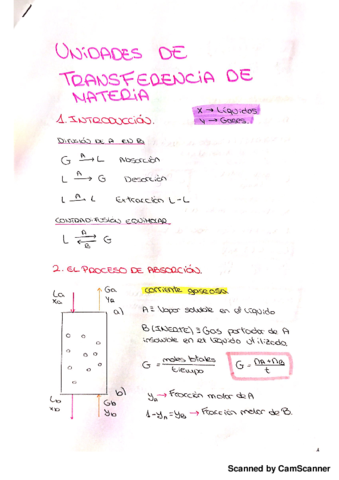 UNIDADES DE
TRANSFERENCIA DE
MATERIA
1. INTRODUCCIÓN.
X → Líquidos
Y → Gases.
DIFUSIÓN DE A EN B
G —A→ L Absorción
L —A→ G Desorción
L —A→ L Extracción L-L
CONTRADIFUSIÓN EQUIMOLAR
L A⇄B G
2. EL PROCESO DE ABSORCIÓN.
La
xa
Ga
ya
a)
corriente gaseosa
A ≡ Vapor soluble en el líquido
B (INERTE) ≡ Gas portador de A
insoluble en el líquido utilizado
G = moles totales / tiempo
G = (nA + nB) / t
yA → Fracción molar de A
1-yA = yB → Fracción molar de B.
b)
Lb
xb
Gb
yb
1
Scanned by CamScanner